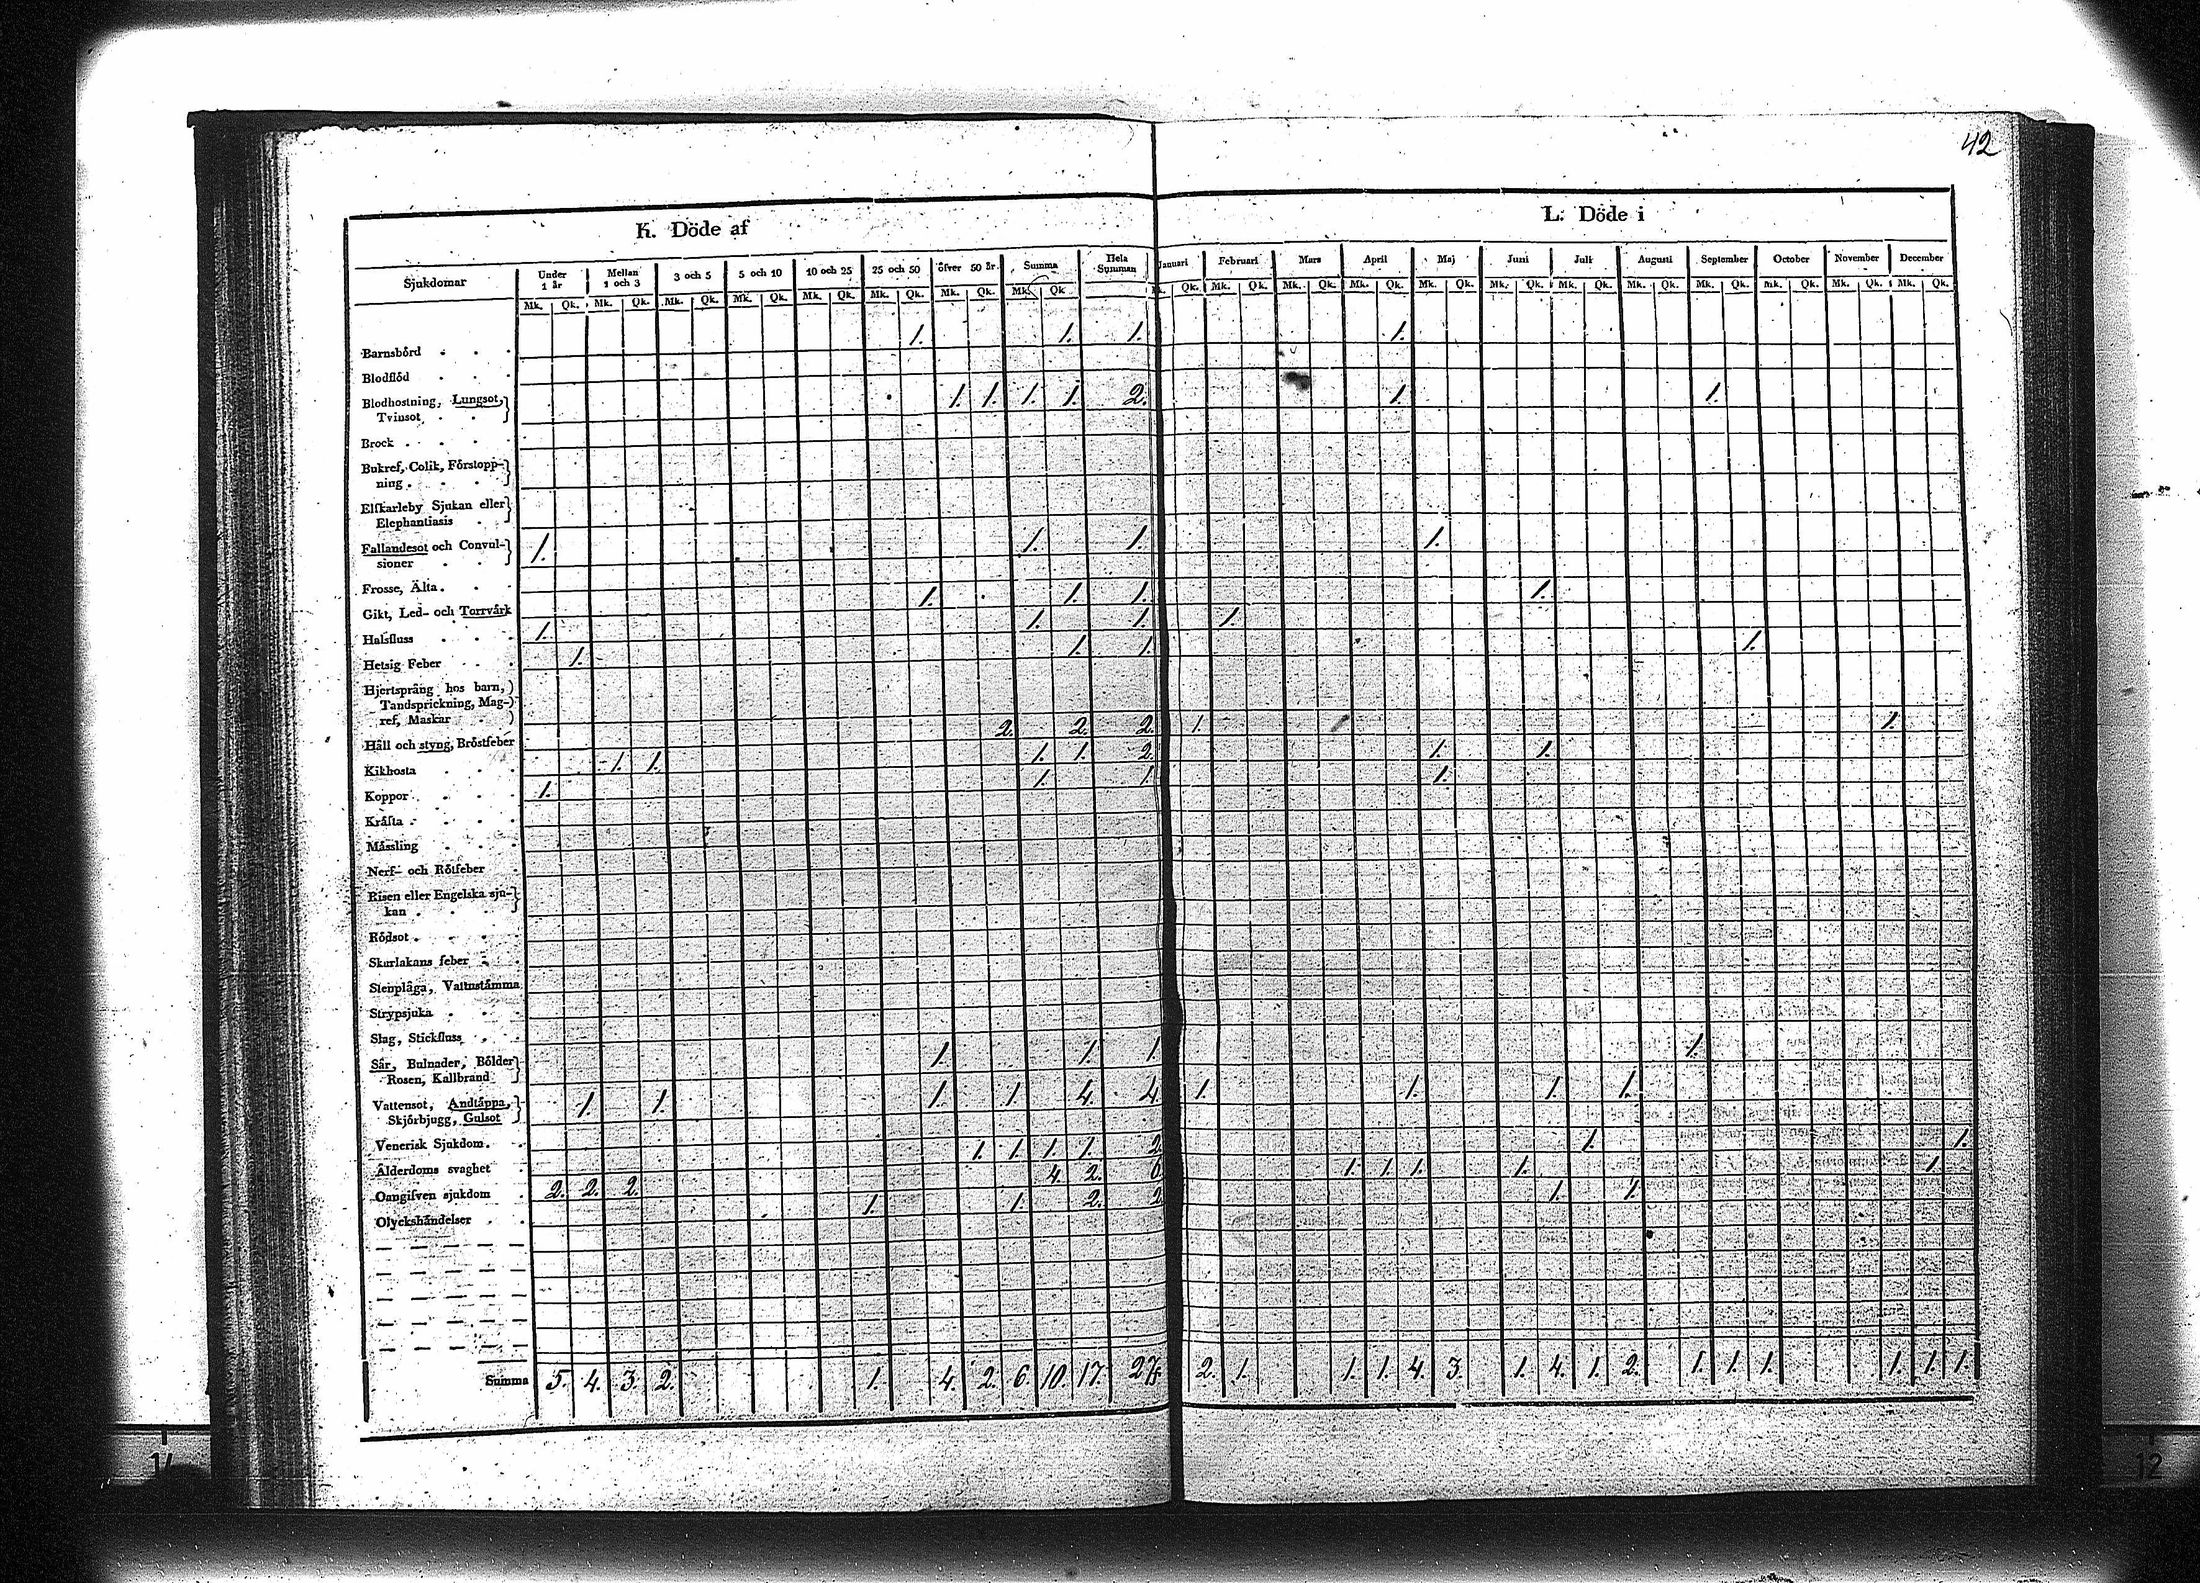 42
K. Döde af
L. Döde i
Sjukdomar Under 1 år Mellan 1 och 3 3 och 5 5 och 10 10 och 25 25 och 50 öfver 50 år Summa Hela Summan Januari Februari Mars April Maj Juni Juli Augusti September October November December
Mk. Qk. Mk. Qk. Mk. Qk. Mk. Qk. Mk. Qk. Mk. Qk. Mk. Qk. Mk. Qk. Qk. Mk. Qk. Mk. Qk. Mk. Qk. Mk. Qk. Mk. Qk. Mk. Qk. Mk. Qk. Mk. Qk. Mk. Qk. Mk. Qk. Mk. Qk.
Barnsbörd 1. 1. 1. 1.
Blodflöd
Blodhostning, Lungsot, Tvinsot 1. 1. 1. 1. 2. 1. 1.
Brock
Bukref, Colik, Förstopp-
ning
Elfkarleby Sjukan eller
Elephantiasis
Fallandesot och Convul-
sioner 1. 1. 1. 1.
Frosse, Älta
Gikt, Led- och Torrvärk 1. 1. 1. 1.
Halsfluss 1. 1. 1. 1.
Hetsig Feber 1. 1. 1. 1.
Hjertsprång hos barn,
Tandsprickning, Mag-
ref, Maskar
Håll och styng, Bröstfeber 2. 2. 2. 1. 1.
Kikhosta 1. 1. 1. 1. 2. 1. 1.
Koppor 1. 1. 1. 1.
Kräfta
Mässling
Nerf- och Rötfeber
Risen eller Engelska sju-
kan
Rödsot
Skarlakans feber
Stenplåga, Vattnstämma
Strypsjuka
Slag, Stickfluss
Sår, Bulnader, Bölder
Rosen, Kallbrand 1. 1. 1. 1.
Vattensot, Andtäppa,
Skjörbjugg, Gulsot 1. 1. 1. 1. 4. 4. 1. 1. 1. 1.
Venerisk Sjukdom
Ålderdoms svaghet 1. 1. 1. 1. 2 1. 1.
Oangifven sjukdom 2. 2. 2. 4. 2. 6 1. 1. 1. 1. 1.
Olyckshändelser 1. 1. 2. 2 1. 1.
Summa 5. 4. 3. 2. 1. 4. 2. 6. 10. 17. 2. 1. 1. 1. 4. 3. 1. 4. 1. 2. 1. 1. 1. 1. 1. 1.
14
12